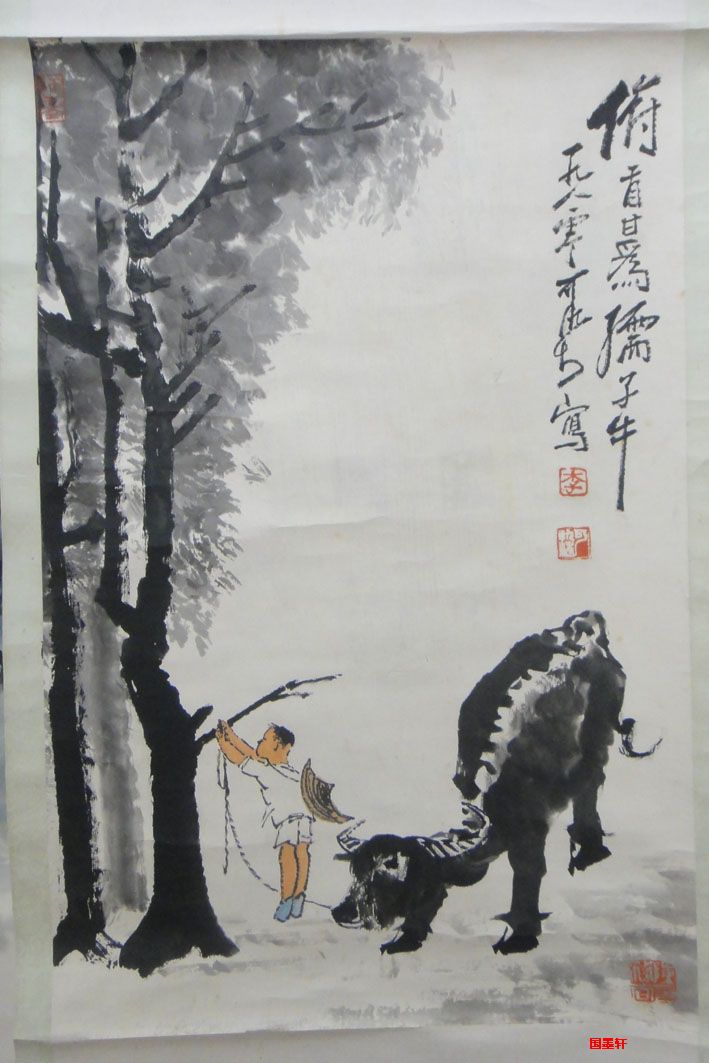 俯首甘為孺子牛
一九八零可染寫
李
可染
国墨轩